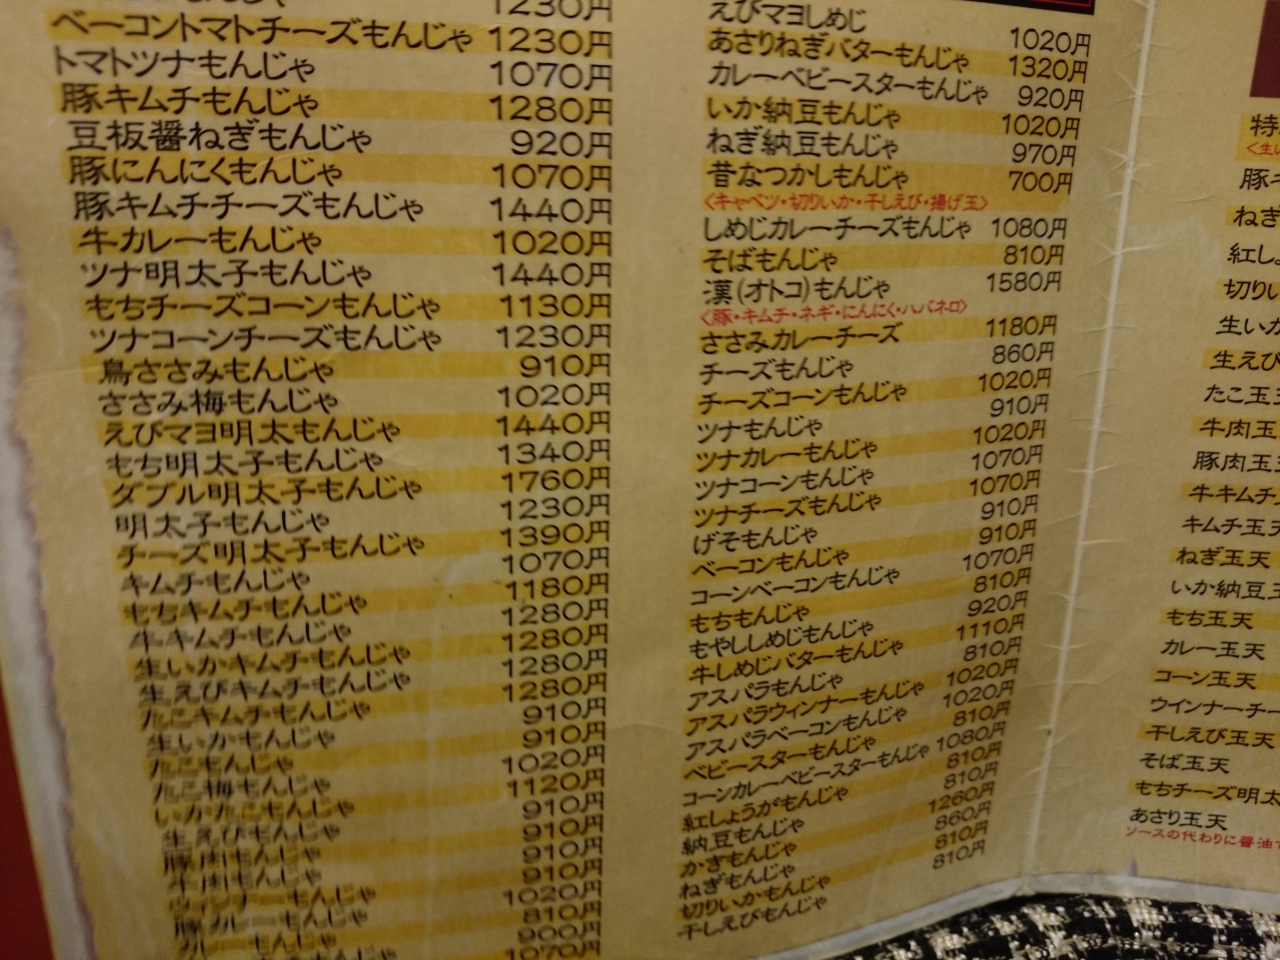 1230円
ベーコントマトチーズもんじゃ 1230円
トマトツナもんじゃ 1070円
豚キムチもんじゃ 1280円
豆板醤ねぎもんじゃ 920円
豚にんにくもんじゃ 1070円
豚キムチチーズもんじゃ 1440円
牛カレーもんじゃ 1020円
ツナ明太子もんじゃ 1440円
もちチーズコーンもんじゃ 1130円
ツナコーンチーズもんじゃ 1230円
鳥ささみもんじゃ 910円
ささみ梅もんじゃ 1020円
えびマヨ明太もんじゃ 1440円
もち明太子もんじゃ 1340円
ダブル明太子もんじゃ 1760円
明太子もんじゃ 1230円
チーズ明太子もんじゃ 1390円
キムチもんじゃ 1070円
もちキムチもんじゃ 1180円
牛キムチもんじゃ 1280円
生いかキムチもんじゃ 1280円
生えびキムチもんじゃ 1280円
たこキムチもんじゃ 1280円
生いかもんじゃ 910円
たこもんじゃ 910円
たこ梅もんじゃ 1020円
いかたこもんじゃ 1120円
生えびもんじゃ 910円
豚肉もんじゃ 910円
牛肉もんじゃ 910円
ウィンナーもんじゃ 910円
豚カレーもんじゃ 1020円
カレーもんじゃ 810円
900円
1070円
えびマヨしめじ 1020円
あさりねぎバターもんじゃ 1320円
カレーベビースターもんじゃ 920円
いか納豆もんじゃ 1020円
ねぎ納豆もんじゃ 970円
昔なつかしもんじゃ 700円
〈キャベツ・切りいか・干しえび・揚げ玉〉
しめじカレーチーズもんじゃ 1080円
そばもんじゃ 810円
漢(オトコ)もんじゃ 1580円
〈豚・キムチ・ネギ・にんにく・ハバネロ〉
ささみカレーチーズ 1180円
チーズもんじゃ 860円
チーズコーンもんじゃ 1020円
ツナもんじゃ 910円
ツナカレーもんじゃ 1020円
ツナコーンもんじゃ 1070円
ツナチーズもんじゃ 1070円
げそもんじゃ 910円
ベーコンもんじゃ 910円
コーンベーコンもんじゃ 1070円
もちもんじゃ 810円
もやししめじもんじゃ 920円
牛しめじバターもんじゃ 1110円
アスパラもんじゃ 810円
アスパラウィンナーもんじゃ 1020円
アスパラベーコンもんじゃ 1020円
ベビースターもんじゃ 810円
コーンカレーベビースターもんじゃ 1080円
紅しょうがもんじゃ 810円
納豆もんじゃ 810円
かきもんじゃ 1260円
ねぎもんじゃ 860円
切りいかもんじゃ 810円
干しえびもんじゃ 810円
特
〈生い
豚キ
ねぎ
紅しょ
切りい
生いか
生えび
たこ玉
牛肉玉
豚肉玉
牛キムチ
キムチ玉天
ねぎ玉天
いか納豆玉
もち玉天
カレー玉天
コーン玉天
ウインナーチー
干しえび玉天
そば玉天
もちチーズ明太
あさり玉天
ソースの代わりに醤油で